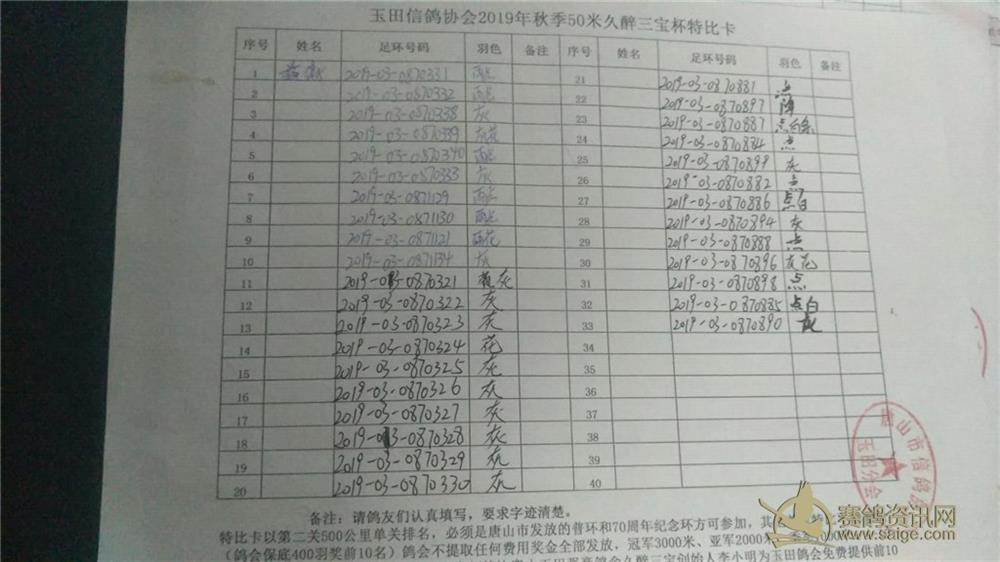 玉田信鸽协会2019年秋季50米久醉三宝杯特比卡
序号 姓名 足环号码 羽色 备注 序号 姓名 足环号码 羽色 备注
1 2019-03-0870331 雨点 21 2019-03-0870881 点
2 2019-03-0870332 雨点 22 2019-03-0870897 降
3 2019-03-0870338 灰 23 2019-03-0870887 点白条
4 2019-03-0870339 灰花 24 2019-03-0870884 点
5 2019-03-0870340 雨点 25 2019-03-0870899 灰
6 2019-03-0870333 灰 26 2019-03-0870882 点
7 2019-03-0871129 雨点 27 2019-03-0870886 点白
8 2019-03-0871130 雨点 28 2019-03-0870894 灰
9 2019-03-0871121 雨花 29 2019-03-0870888 点
10 2019-03-0871134 灰 30 2019-03-0870896 灰花
11 2019-03-0870321 灰 31 2019-03-0870898 点
12 2019-03-0870322 灰 32 2019-03-0870885 点白
13 2019-03-0870323 灰 33 2019-03-0870890 灰
14 2019-03-0870324 花 34
15 2019-03-0870325 灰 35
16 2019-03-0870326 灰 36
17 2019-03-0870327 灰 37
18 2019-03-0870328 灰 38
19 2019-03-0870329 灰 39
20 2019-03-0870330 灰 40
唐山市信鸽
玉田分会
备注：请鸽友们认真填写，要求字迹清楚。
特比卡以第二关500公里单关排名，必须是唐山市发放的普环和70周年纪念环方可参加，其
(鸽会保底400羽奖前10名)鸽会不提取任何费用奖金全部发放，冠军3000米、亚军2000米
创始人李小明为玉田鸽会免费提供前10
赛鸽资讯网
www.saige.com